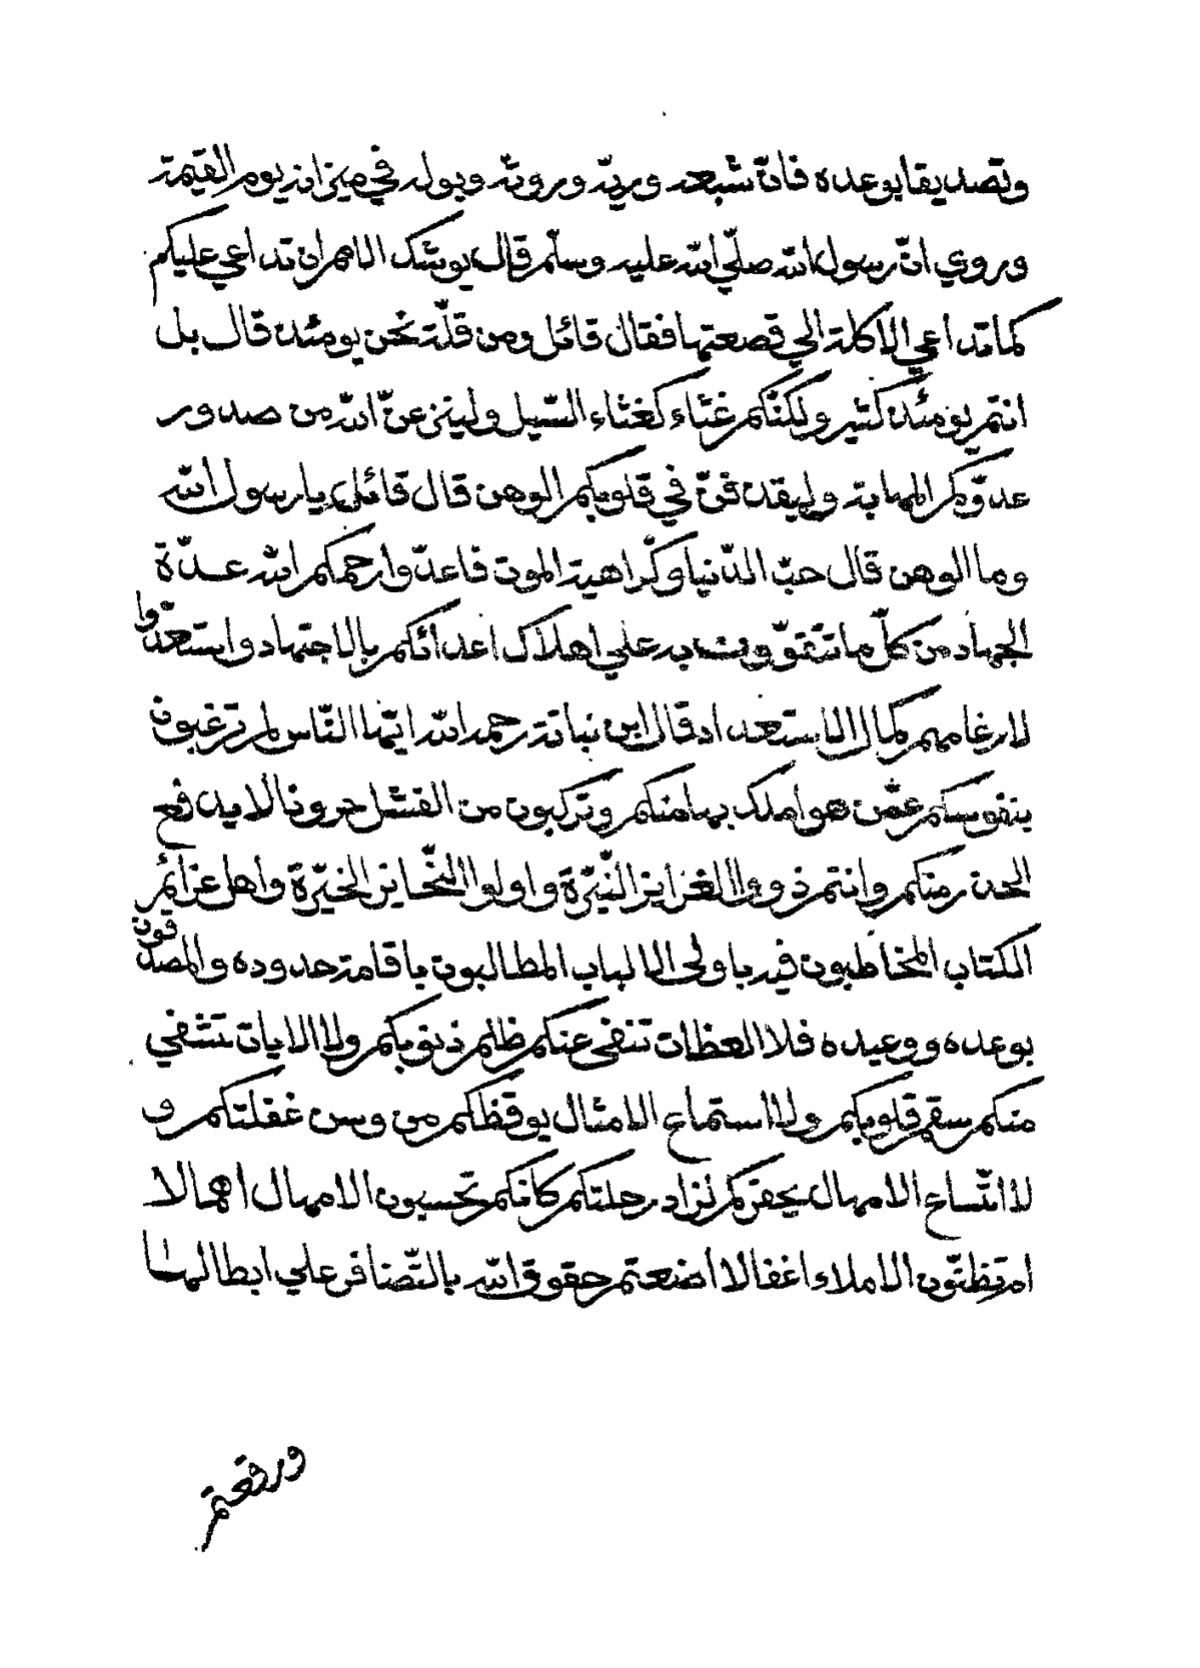 وتصديقا بوعده فانّ شبعه وريّه وروثه وبوله في ميزانه يوم القيمة
وروي انّ رسول الله صلّي الله عليه وسلّم قال يوشك الامم ان تداعي عليكم
كما تداعي الاكلة الي قصعتها فقال قائل ومن قلّة نحن يومئذ قال بل
انتم يومئذ كثير ولكنّكم غثاء كغثاء السّيل ولينزعنّ الله من صدور
عدوّكم المهابة وليقذفنّ في قلوبكم الوهن قال قائل يا رسول الله
وما الوهن قال حبّ الدّنيا وكراهية الموت فاعدّوا رحمكم الله عدّة
الجهاد من كلّ ما تتقوّون به علي اهلاك اعدائكم بالاجتهاد واستعدّوا
لارغامهم بكمال الاستعداد قال ابن نباتة رحمه الله ايّها النّاس لم ترغبون
بنفوسكم عمّن هو املك بها منكم وتركبون من الفشل حرونا لا يدفع
الحذر منكم وانتم ذووا الغرايز النّيّرة واولوا النّحّايز الخيّرة واهل عزائم
الكتاب المخاطبون فيه باولي الالباب المطالبون باقامة حدوده والمصدّقون
بوعده ووعيده فلا العظات تنفي عنكم ظلم ذنوبكم ولا الايات تشفي
منكم سقم قلوبكم ولا استماع الامثال يوقظكم من وسن غفلتكم و
لا اتّساع الامهال يحفزكم لزاد رحلتكم كانكم تحسبون الامهال اهمالا
ام تظنّون الاملاء اغفالا اضعتم حقوق الله بالتّضافر علي ابطالها
ورفعتم